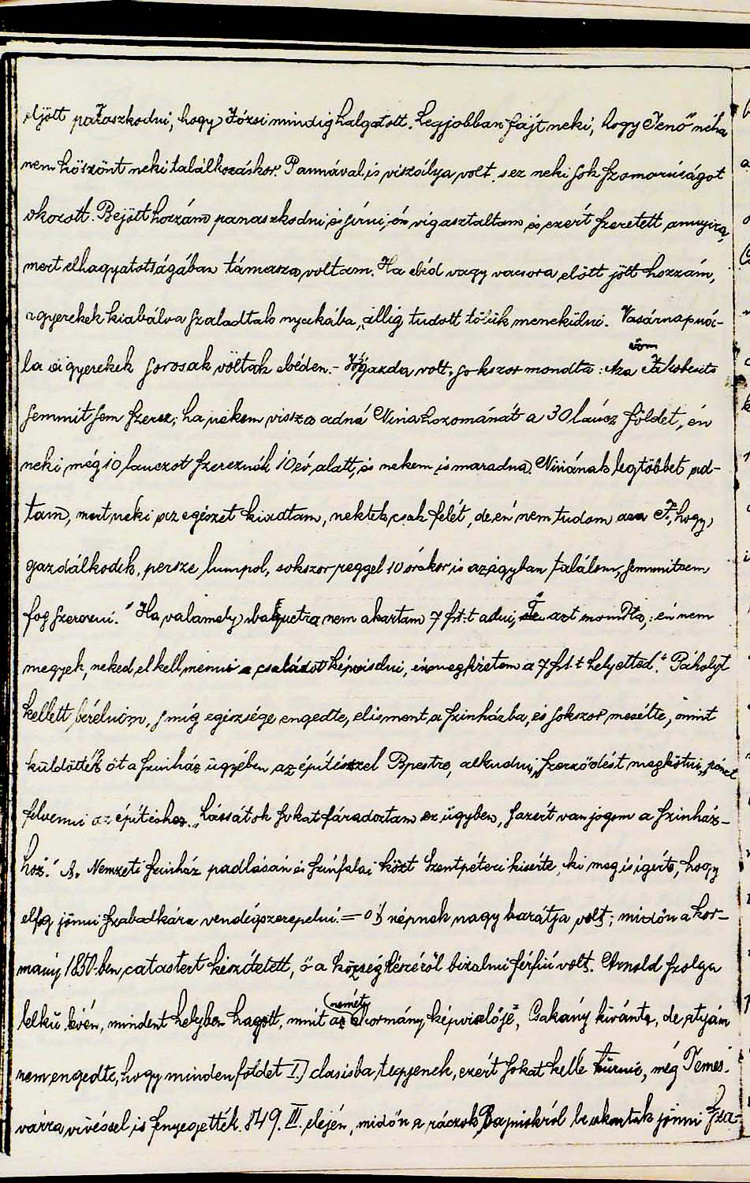 eljött panaszkodni, hogy Józsi mindig halgatott. Legjobban fájt neki, hogy Jenő néha
nem köszönt neki találkozáskor. Pannával is viszálya volt, s ez neki sok szomorúságot
okozott. Bejött hozzám panaszkodni és sírni, én vigasztaltam és ezért szeretett annyira,
mert elhagyatotságában támasza voltam. Ha ebéd vagy vacsora előtt jött hozzám,
a gyerekek kiabálva szaladtak nyakába, alig tudott tőlük menekülni. Vasárnap nála
la a gyerekek sorosak vóltak ebéden. - Jó gazda volt, sokszor mondta: Aza Jakobcsits
semmit sem szerez, ha nékem vissza adná Nina hozományát a 30 láncz földet, én
neki még 10 lanczot szereznék 10 év alatt, és nekem is maradna. Ninának legtöbbet ad-
tam, mert neki az egészet kiadtam, nektek csak felét, de én nem tudom aza J. hogy
gazdálkodik, persze lumpol, sokszor reggel 10 órakor is az ágyban találom, semmit sem
fog szerezni." Ha valamely bankettra nem akartam 7 frt-t adni, azt mondta: én nem
megyek, neked el kell menni a családot képviselni, én megfizetem a 7 frt-t helyetted." Páholyt
kellett bérelnöm, s míg egészsége engedte, elis ment a szinházba, és sokszor mesélte, amint
küldötték őt a szinház ügyében az építészzel Bpestre, alkudni, szerződést megkötni, pénzt
felvenni az építéshez. „Lássátok sokat fáradoztam ez ügyben, s azért van jogom a szinház-
hoz." A Nemzeti szinház padlásán és szinfalai közt Szentpéteri kisérte, ki meg is igérte, hogy
elfog jönni Szabadkára vendégszerepelni. = ő b népnek nagy barátja volt; midőn a kor-
mány 1850-ben catastert készítetett, ő a község részéről bizalmi férfiú volt. Arnold szolga
lelkü lévén, mindent helyben hagyott, mint a német kormány képviselője, Csakány kivánta, de atyám
nem engedte, hogy minden földet I) classisba tegyenek, ezért sokat kelle tűrnie, még Temes-
várra vivéssel is fenyegették. 849. III. elején, midőn a ráczok Bajmiskról be akartak jönni Sza-